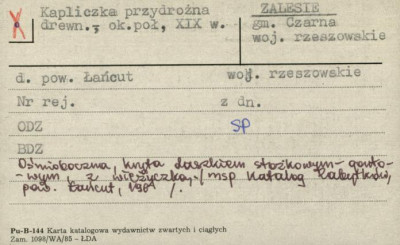 Kapliczka przydrożna
drewn., ok.poł, XIX w.
ZALESIE
gm. Czarna
woj. rzeszowskie
d. pow. Łańcut
woj. rzeszowskie
Nr rej.
z dn.
ODZ
SP
BDZ
Ośmioboczna, kryta daszkiem stożkowym - gonto-
-wym, z wieżyczką, /msp Katalog Zabytków,
pow. Łańcut, 1961 /.
Pu-B-144 Karta katalogowa wydawnictw zwartych i ciągłych
Zam. 1098/WA/85 - ŁDA